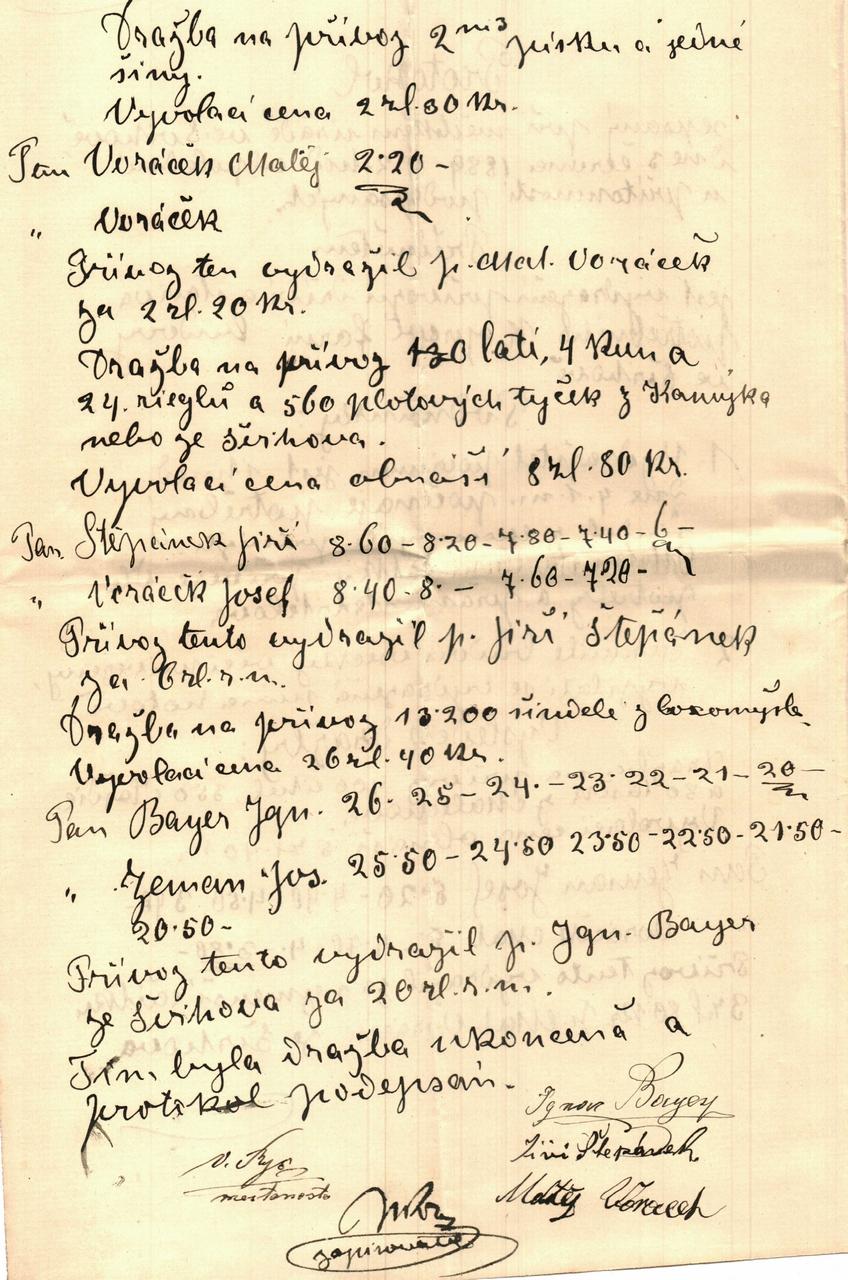 Dražba na přívoz 2 m3 písku a jedné
šiny.
Vyvolací cena 2 zl. 30 Kr.
Pan Voráček Matěj 2·20 -
" Voráček
Přívoz ten vydražil p. Mat. Voráček
za 2 zl. 20 Kr.
Dražba na přívoz 130 latí, 4 Kun a
24. rieglů a 560 plotových tyček z Kamýka
nebo ze Švihova.
Vyvolací cena obnáší 8 zl. 80 Kr.
Pan Štěpánek Jiří 8·60 - 8·20 - 7·80 - 7·40 - 6 -
" Voráček Josef 8·40 - 8· - 7·60 - 7·20 -
Přívoz tento vydražil p. Jiří Štěpánek
za 6 zl. r. m.
Dražba na přívoz 13·200 šindele z
Vyvolací cena 26 zl. 40 Kr.
Pan Bayer Ign. 26· 25 - 24· - 23· 22 - 21 - 20 -
" Zeman Jos. 25·50 - 24·50 23·50 - 22·50 - 21·50 -
20·50 -
Přívoz tento vydražil p. Ign. Bayer
ze Švihova za 20 zl. r. m.
Tím byla dražba ukončená a
protokol podepsán.
Ignac Bayer
Jiří Štěpánek
v.
Matěj Voracek
zapisovatel